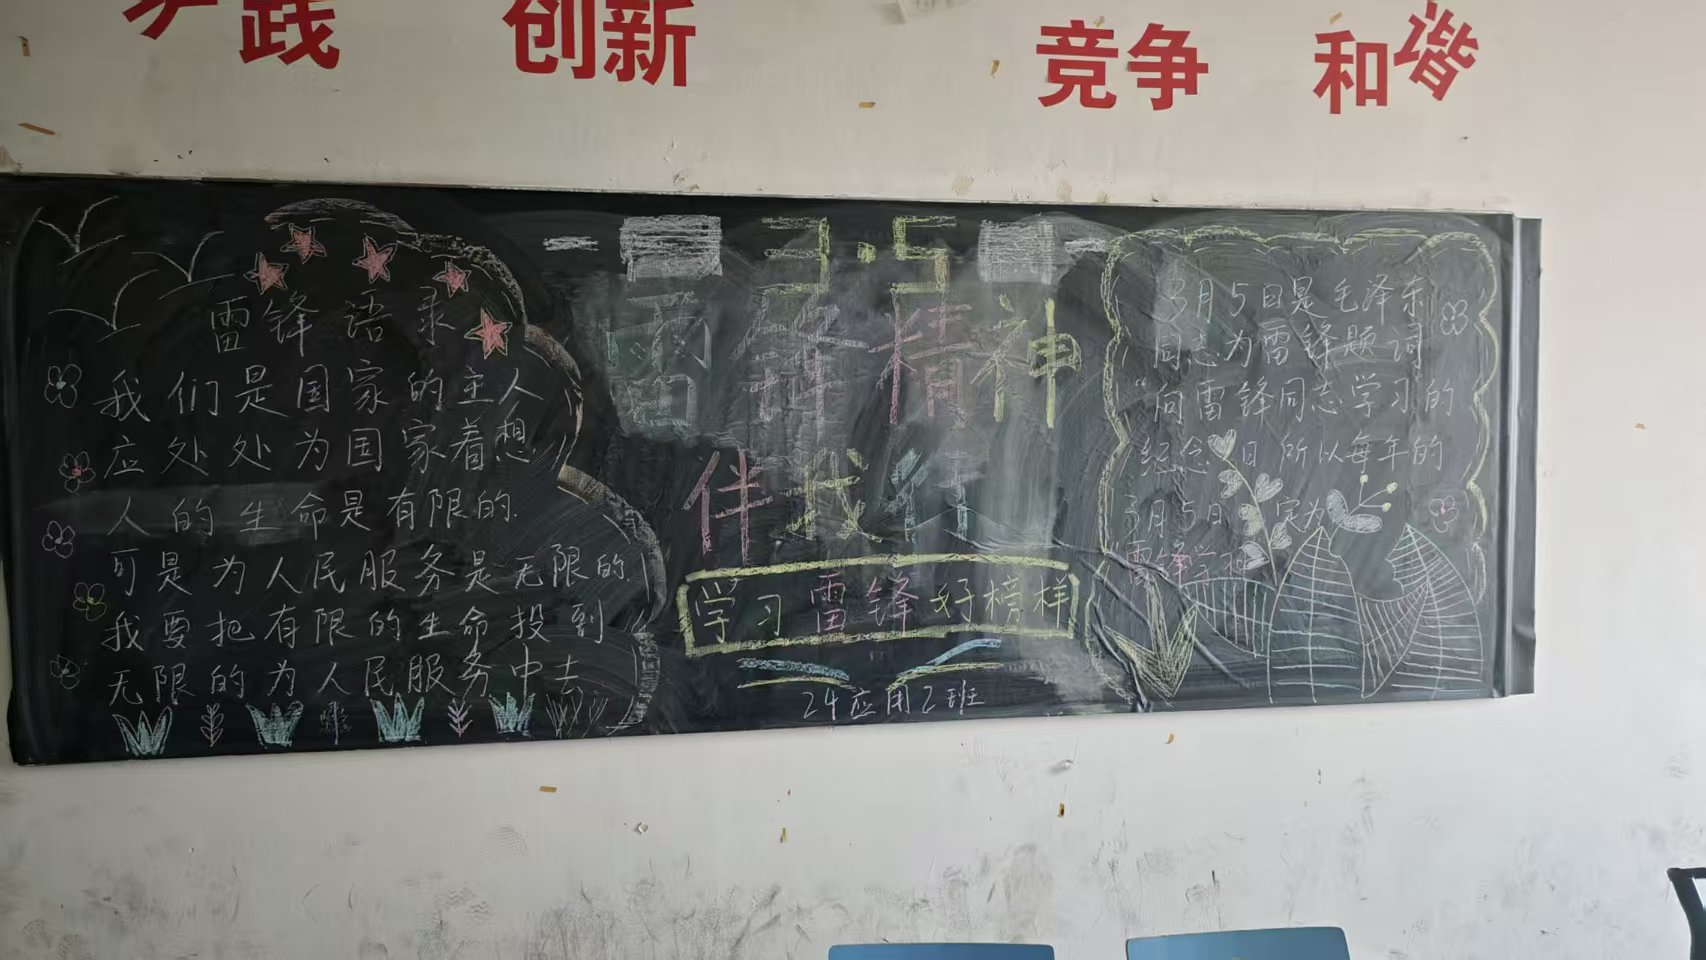 践 创新 竞争 和谐
雷锋语录
我们是国家的主人
应处处为国家着想
人的生命是有限的.
可是为人民服务是无限的
我要把有限的生命投到
无限的为人民服务中去
3.5
雷锋精神
伴我行
学习雷锋好榜样
24应用2班
3月5日是毛泽东
同志为雷锋题词
“向雷锋同志学习的
纪念日 所以每年的
3月5日 定为
雷锋学